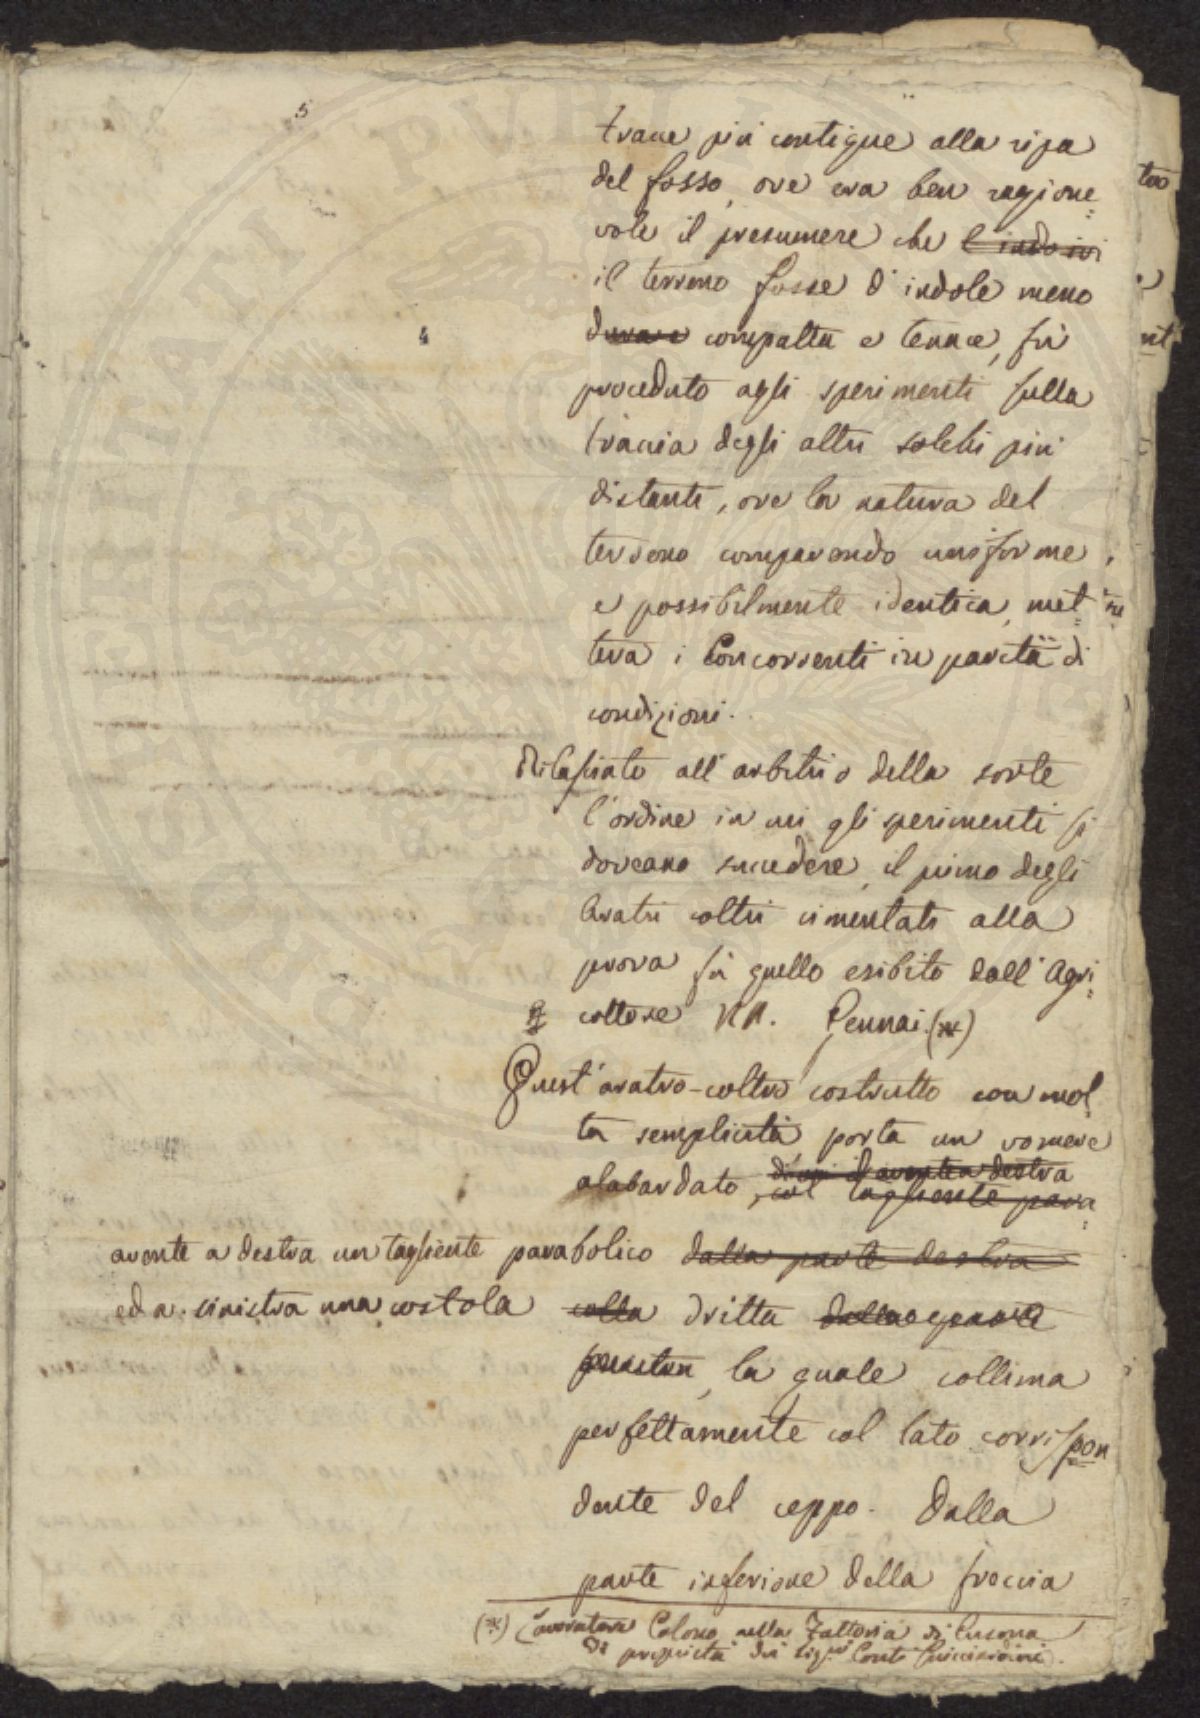 5
tracce più contigue alla ripa
del fosso, ove era ben ragione=
vole il presumere che
il terreno fosse d'indole meno
dura e compatta e tenace, fù
proceduto agli sperimenti sulla
traccia degli altri solchi più
distanti, ove la natura del
terreno comparendo uniforme,
e possibilmente identica, met=
teva i Concorrenti in parità di
condizioni.
Rilasciato all'arbitrio della sorte
l'ordine in cui gli sperimenti si
doveano succedere, il primo degli
Aratri coltri cimentati alla
prova fù quello esibito dall'Agri=
coltore Gennai. (*)
Quest'aratro-coltro costrutto con mol=
ta semplicità, porta un vomere
di cui il avente a destra
alabardato, col tagliente para=
avente a destra un tagliente parabolico dalla parte destra
ed a sinistra una costola colla dritta dalla
sinistra, la quale collima
perfettamente col lato corrispon
dente del ceppo. Dalla
parte inferiore della freccia
(*) Lavoratore Colono nella Fattoria di Cusona
di proprietà dei Sig.ri Conti Guicciardini.